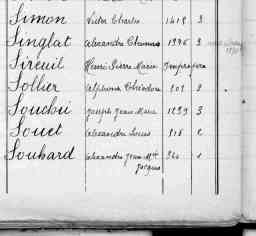 Simon Victor Charles 1419 3
Singlat Alexandre Thomas 1996 3
Sireuil Henri Pierre Marie
Sollier Alphonse Théodore 909 2
Souchu Joseph Jean Marie 1299 3
Souet Alexandre Louis 916 2
Souhard Alexandre Jean Mie 340 1
Jacques